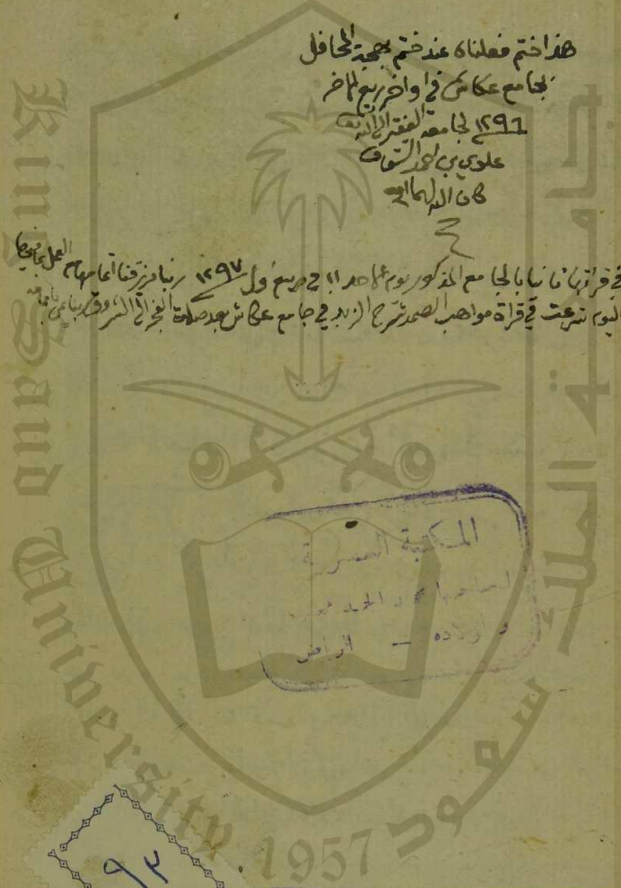 هذا ختم فعلناه عند ختم بهجة المحافل
بجامع عكاش في اواخر ربيع الاخر
١٢٩٦ لجامعه الفقير الى الله
علوي بن احمد السقاف
كان الله لهما
في قراتها ثانيا بالجامع المذكور يوم الاحد ١١ في ربيع اول ١٢٩٧ ربنا يرزقنا اتمامها والعمل بما فيها
اليوم شرعت في قراة مواهب الصمد شرح الزبد في جامع عكاش بعد صلاة الفجر الى الشروق
المكتبة
لصاحبها محمد الحمد
و اولاده – الرياض
٩٣
King Saud University
1957
جامعة الملك سعود